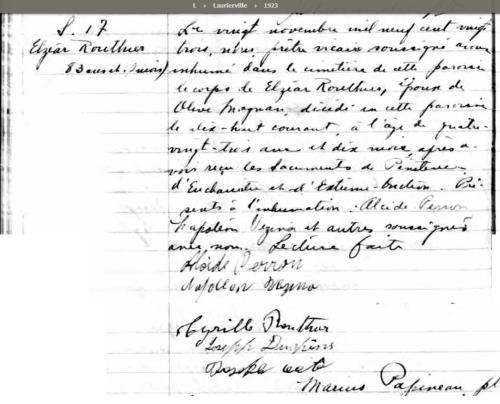 L › Laurierville › 1923
S. 17
Elzéar Routhier
83 ans et 10 mois
Le vingt novembre mil neuf cent vingt
trois, nous, prêtre vicaire soussigné avons
inhumé dans le cimetière de cette paroisse
le corps de Elzéar Routhier, époux de
Olive Magnan, décédé en cette paroisse
le dix-huit courant, à l'âge de quatre-
vingt-trois ans et dix mois, après a-
voir reçu les Sacrements de Pénitence
d'Eucharistie et d'Extrême-Onction. Pré-
sents à l'inhumation: Alcide Perron
Napoléon Vezina et autres soussignés
avec nous. Lecture faite
Alcide Perron
Napoléon Vezina
Cyrille Routhier
Joseph
Marius Papineau